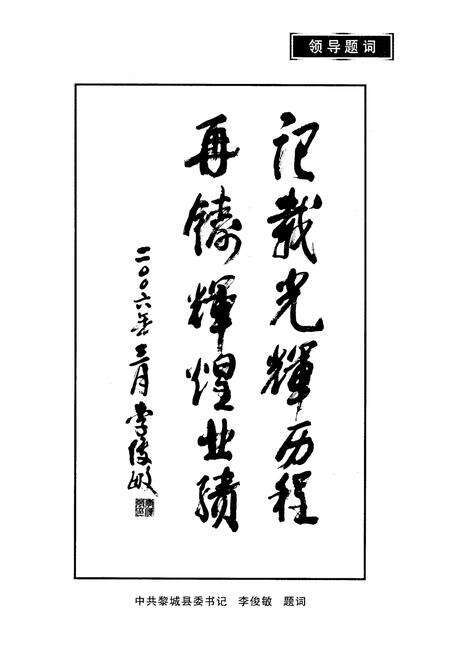 领导题词
记载光辉历程
再铸辉煌业绩
二〇〇六年三月 李俊敏
中共黎城县委书记 李俊敏 题词